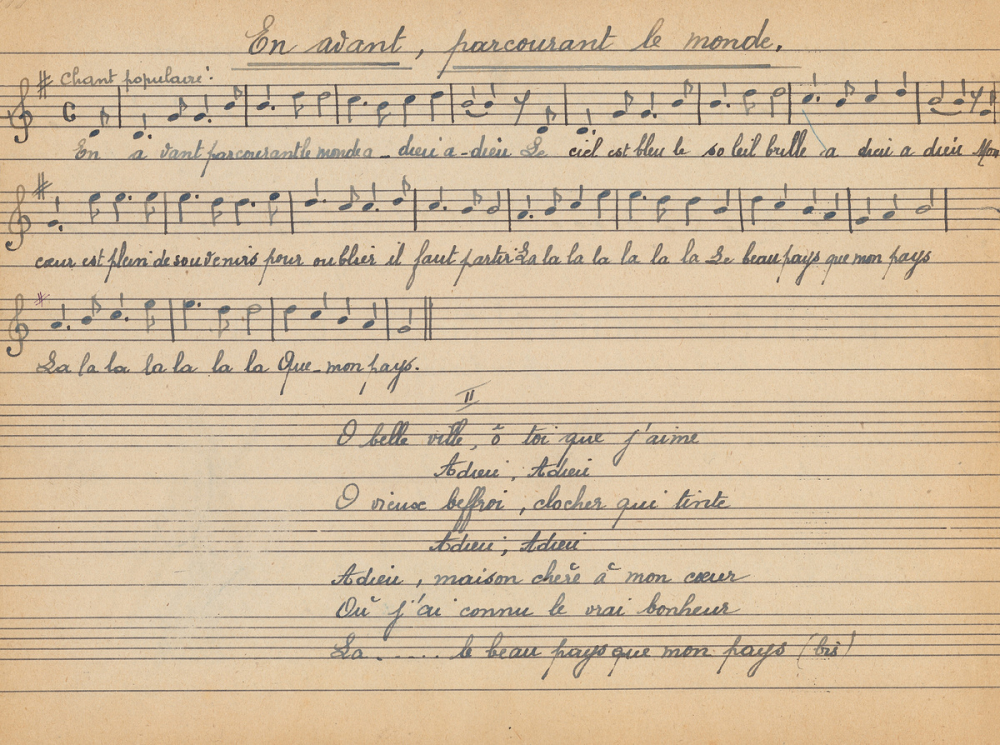 En avant, parcourant le monde.
Chant populaire.
En a vant parcourant le monde a - dieu a - dieu Le ciel est bleu le so leil brille a dieu a dieu Mon
cœur est plein de souvenirs pour oublier il faut partir La la la la la la la Le beau pays que mon pays
La la la la la la la Que - mon pays.
II
O belle ville, ô toi que j'aime
Adieu, Adieu
O vieux beffroi, clocher qui tinte
Adieu, Adieu
Adieu, maison chère à mon cœur
Où j'ai connu le vrai bonheur
La ...... le beau pays que mon pays (bis)